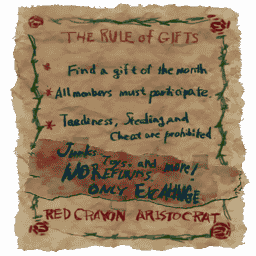 THE RULE of GIFTS
Find a gift of the month
* All members must participate.
* Tardiness, Stealing and
Cheat are prohibited
Junks, Toys, and more!
NO REFUNDS
ONLY EXCHANGE
RED CRAYON ARISTOCRAT